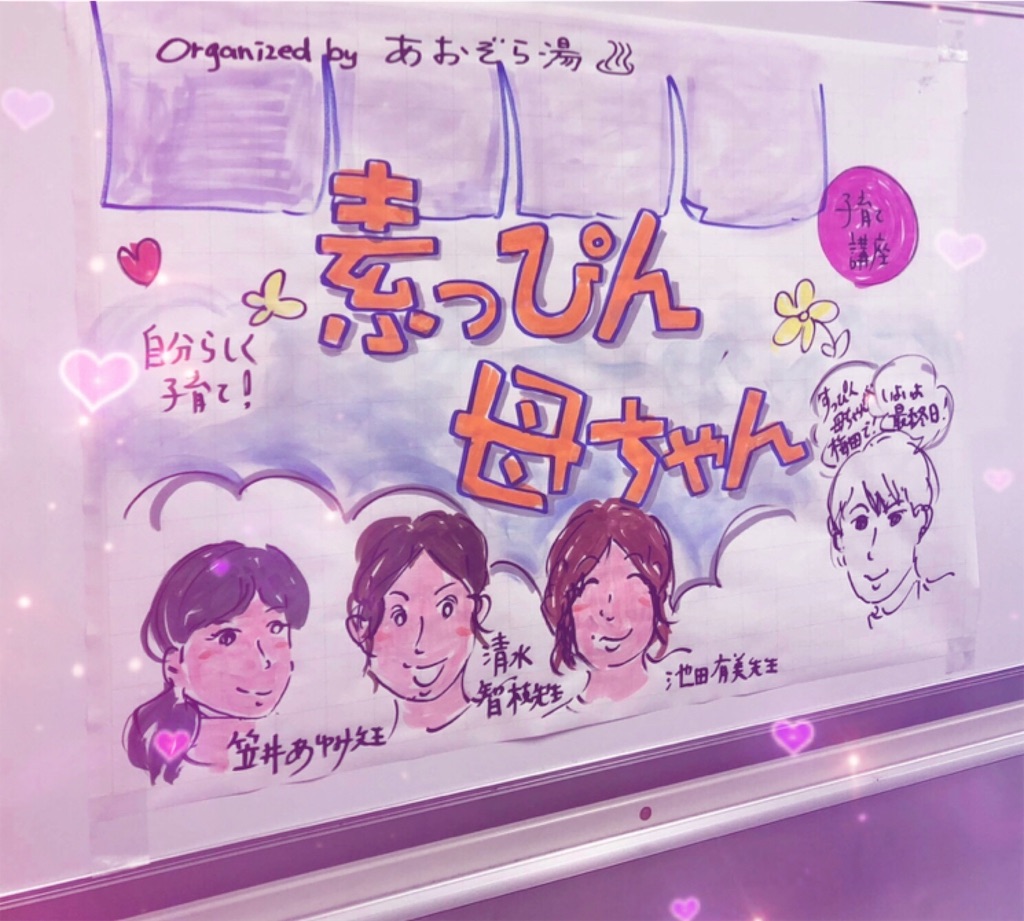 Organized by あおぞら湯♨
子育て
講座
素っぴん
母ちゃん
自分らしく
子育て!
すっぴん
母ちゃん
梅田で!
いよいよ
最終日!
笠井あゆみ先生
清水
智枝先生
池田有美先生